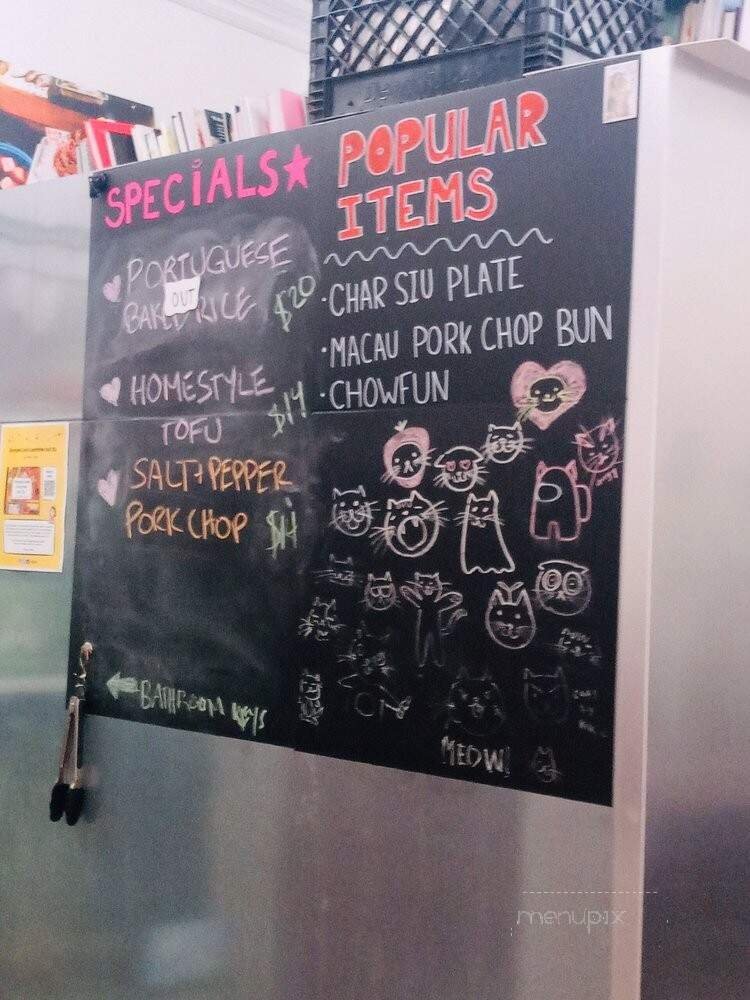 SPECIALS
PORTUGUESE
OUT
BAKED RICE $20
HOMESTYLE
TOFU $14
SALT & PEPPER
PORK CHOP $14
BATHROOM KEYS
POPULAR
ITEMS
· CHAR SIU PLATE
· MACAU PORK CHOP BUN
· CHOWFUN
MEOW!
menupix